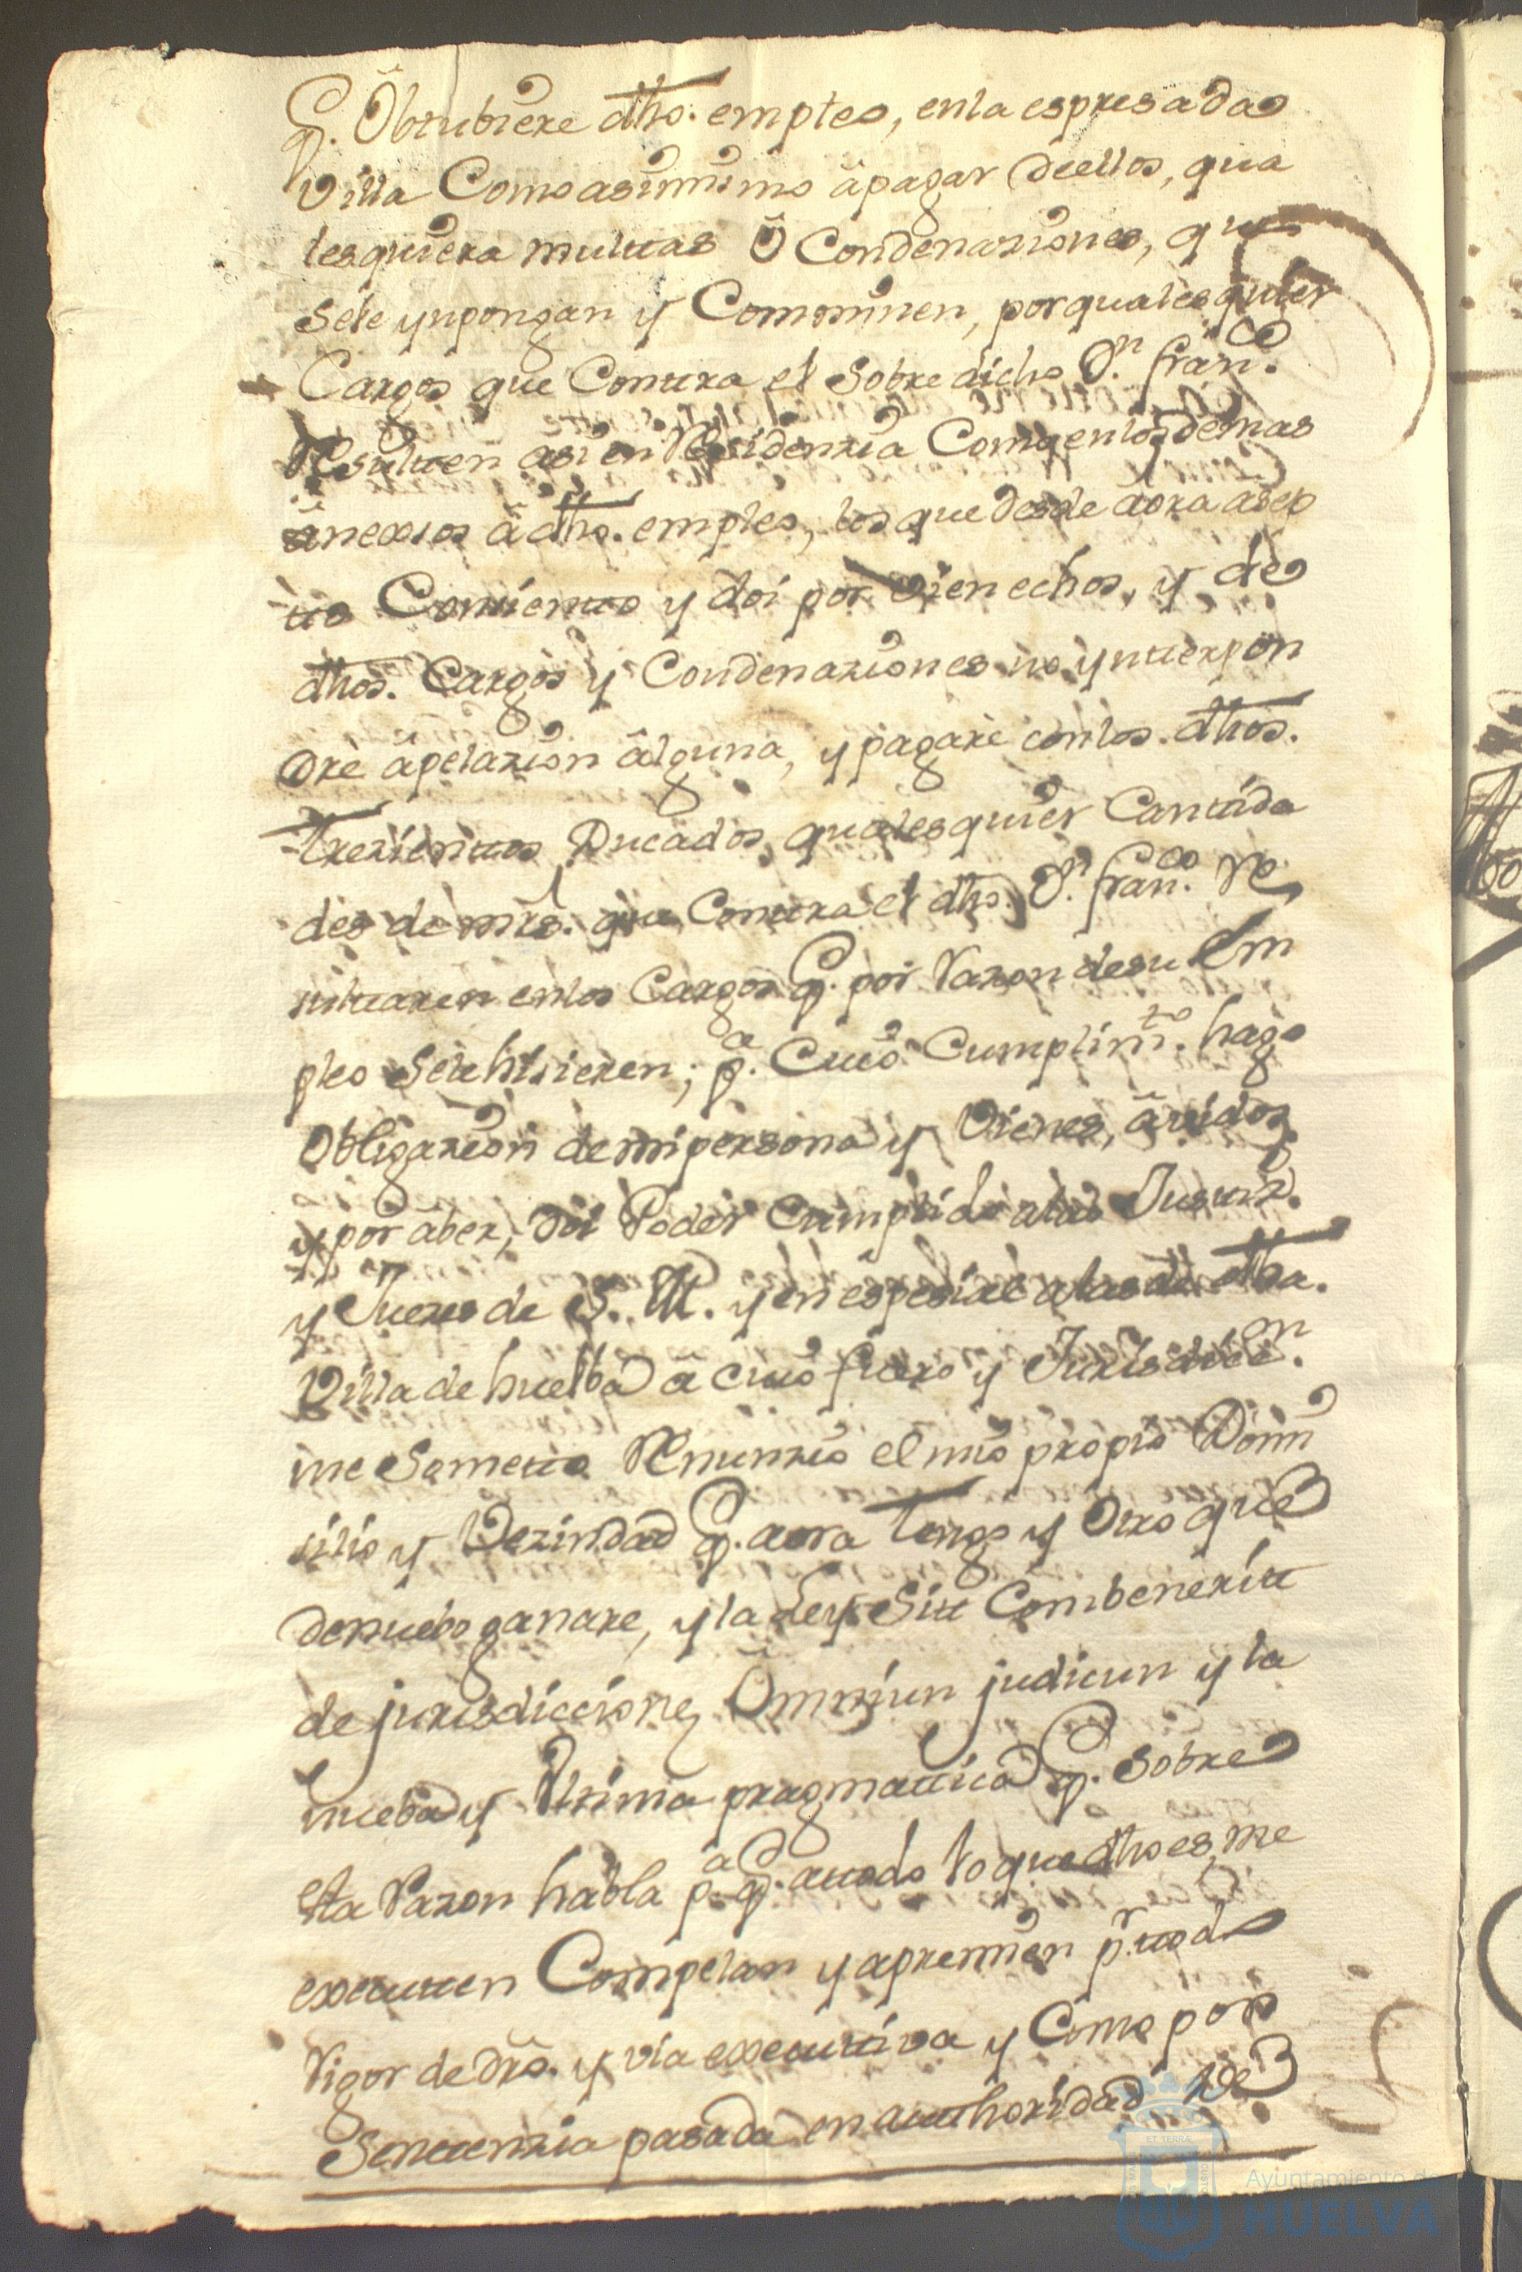 q.e Obtubiere dho. empleo, enla espresada
Villa Comoasimismo âpagar deellos, qua
lesquiera multtas ô Condenaziones, que
sele ynpongan y Comminen, porqualesquier
Cargos que Conttra el Sobre dicho Dn. franco.
Resultten asi en Residenzia Comoenlos demas
ânexsos â dho. empleo, los que desde aora asep
tto Consientto y doi por vien echos, y de
dhos. Cargos y Condenaziones no yntterpon
dre âpelazion âlguna, y pagare con los. dhos.
ttrezienttos Ducados, qualesquier Canttida
des de mrs. que Conttra el dho. Dn. franco. Re
sulttaren enlos Cargos q.e por Razon desu Em
pleo Selehisieren; pa. Cuio Cumplimto. hago
Obligazion demipersona y Vienes, âvidos
y por âber, doi Poder Cumplido alas Justtiz.
y Juezes de S. M. y en espesial alas de dha.
Villa de huelba â cuio fuero y Jurisdiccon.
me Sometto Renunzio el mio propio Domi
silio y Vezindad q.e aora ttengo y Otro que
denuebo ganare, y la Ley Sitt Combeneritt
de jurisdiccione Omniun judicun y la
nueba y Ultima pragmattica q.e Sobre
esta Razon habla pa. q.e attodo lo que dho es, me
executten Compelan y apremien pr. ttodo
Rigor de dro. y via executtiva y Como por
Senttenzia pasada en autthoridad de
ET TERRÆ
Ayuntamiento de
HUELVA